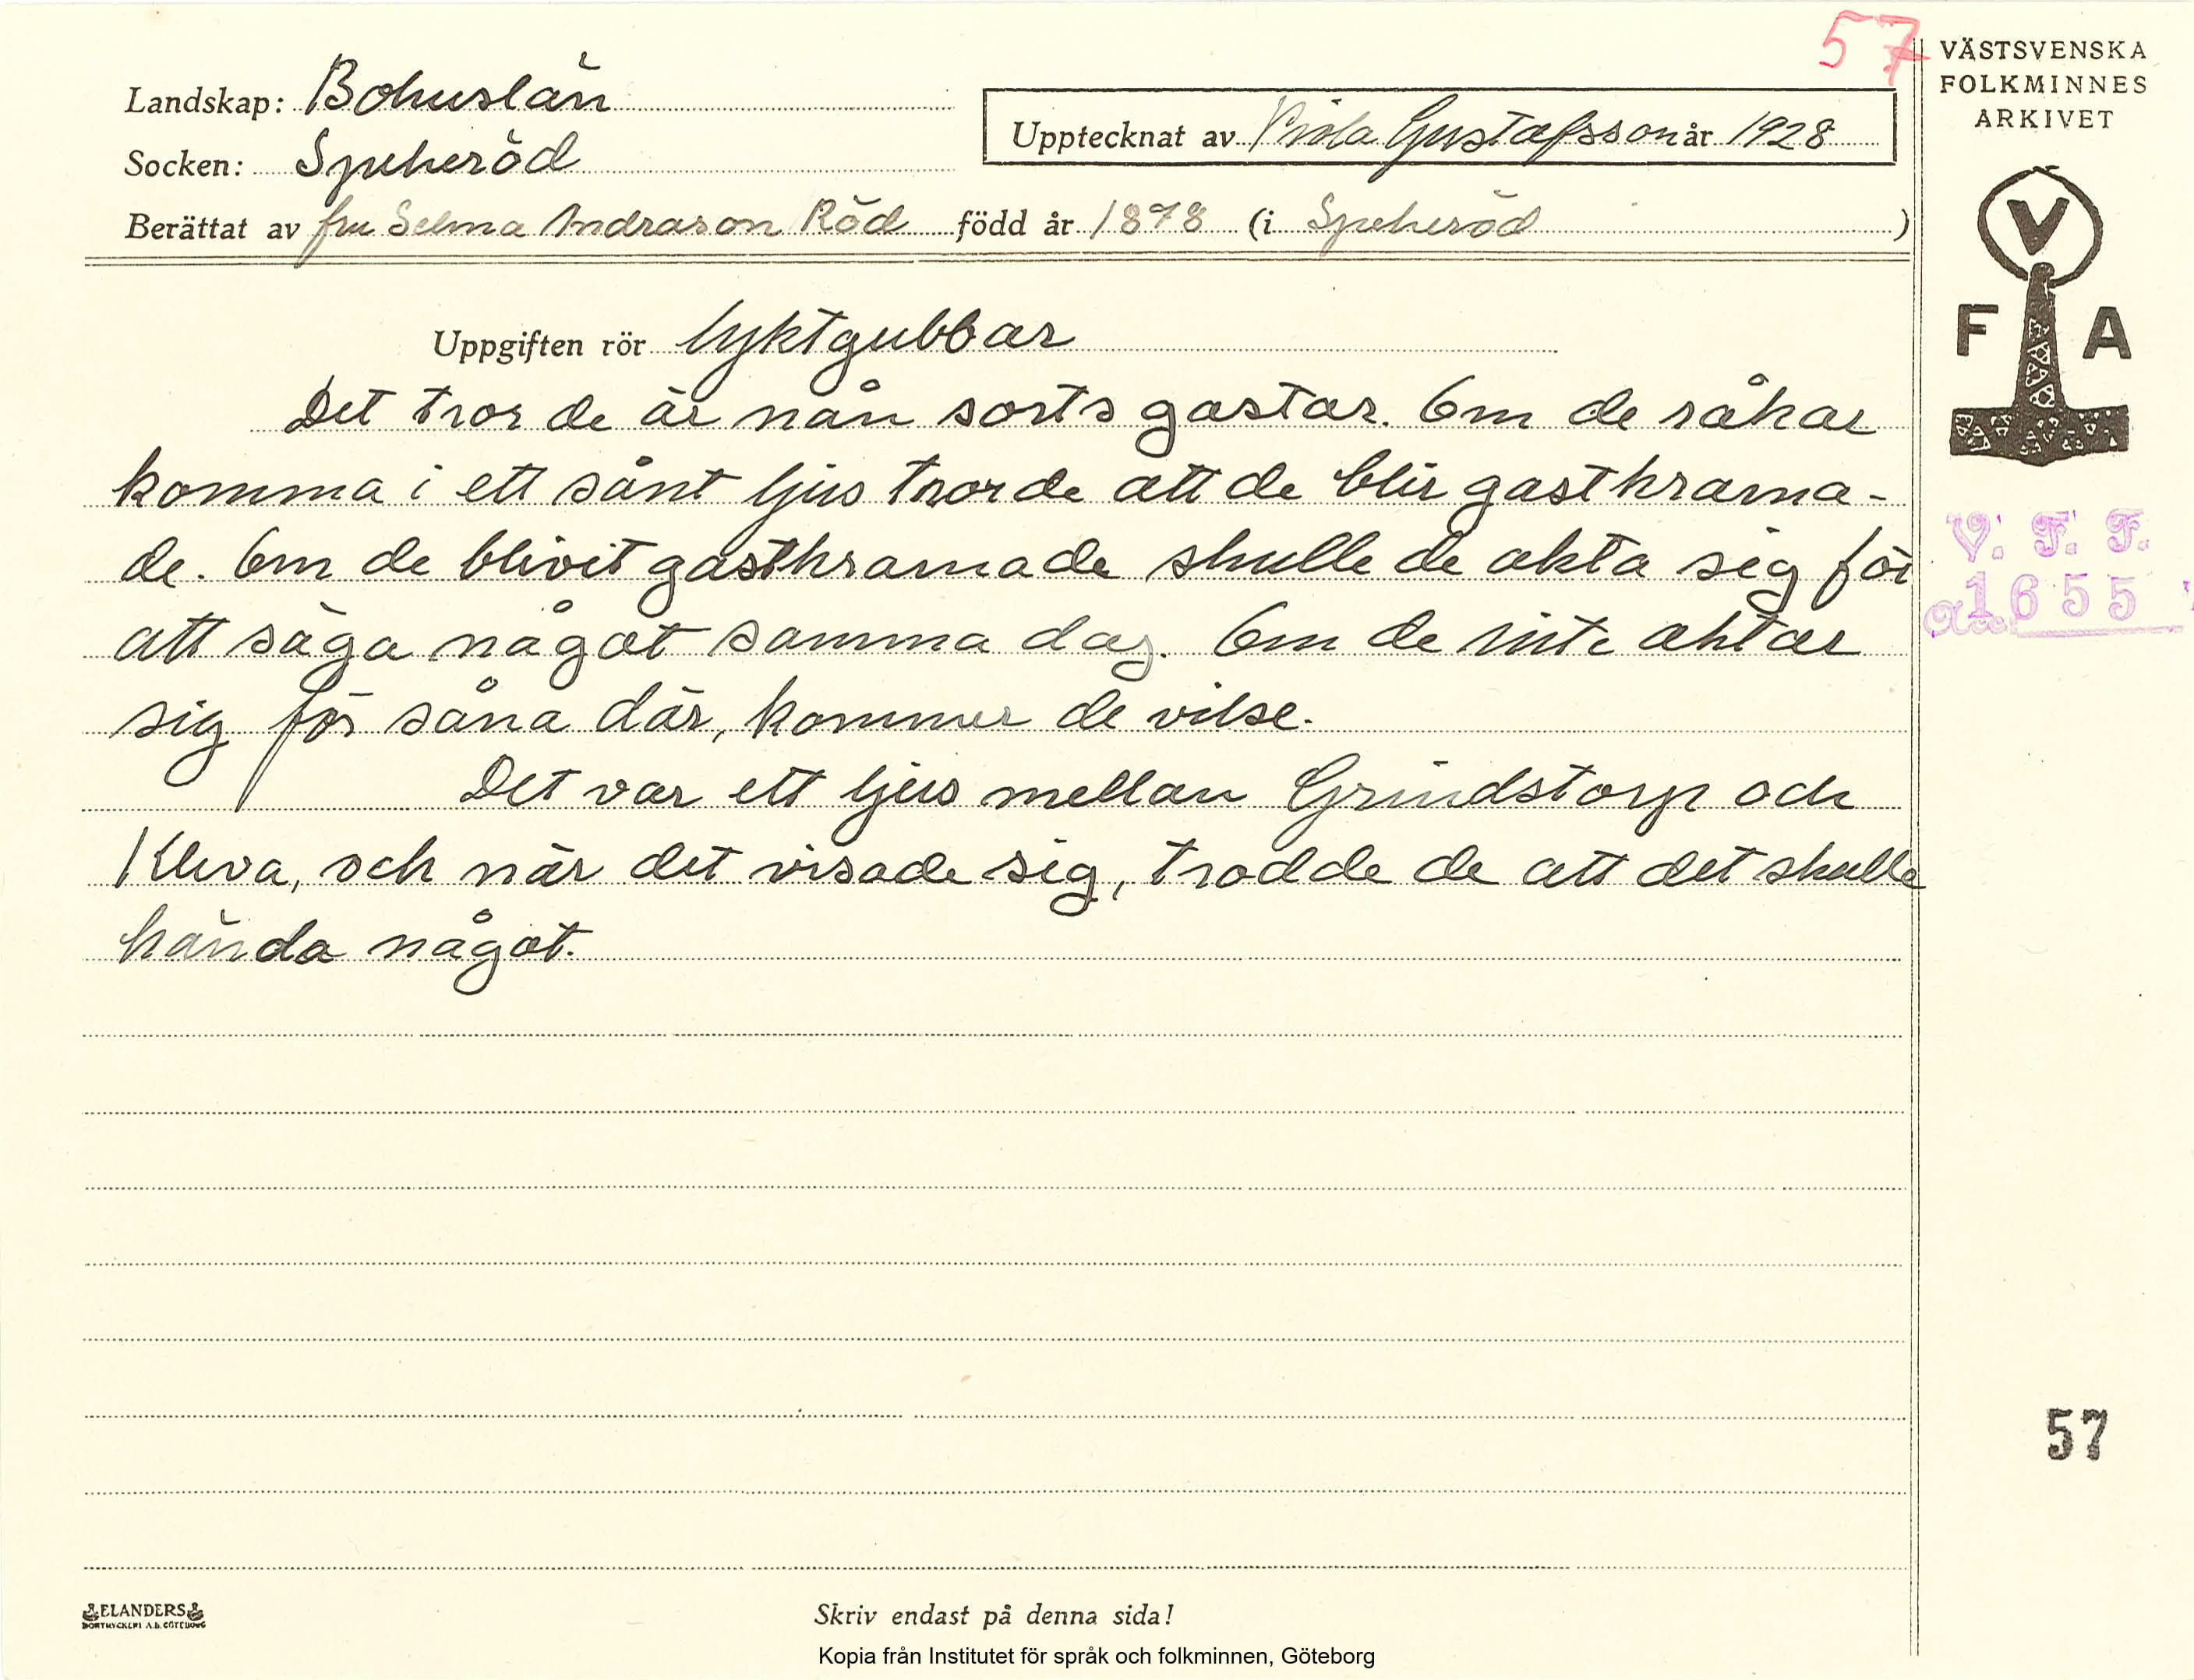 57
VÄSTSVENSKA
FOLKMINNES
ARKIVET
Landskap: Bohuslän
Upptecknat av Viola Gustafsson år 1928
Socken: Spekeröd
Berättat av fru Selma Andrason Röd född år 1878 (i Spekeröd)
V
F A
Uppgiften rör lyktgubbar
Det tror de är nån sorts gastar. Om de råkar
komma i ett sånt ljus tror de att de blir gastkrama-
de. Om de blivit gastkramade skulle de akta sig för
att säga något samma dag. Om de inte aktar
sig för såna där, kommer de vilse.
Det var ett ljus mellan Grindstorp och
Kleva, och när det visade sig, trodde de att det skulle
hända något.
V. F. F.
1655
57
ELANDERS
BOKTRYCKERI A.B. GÖTEBORG
Skriv endast på denna sida!
Kopia från Institutet för språk och folkminnen, Göteborg